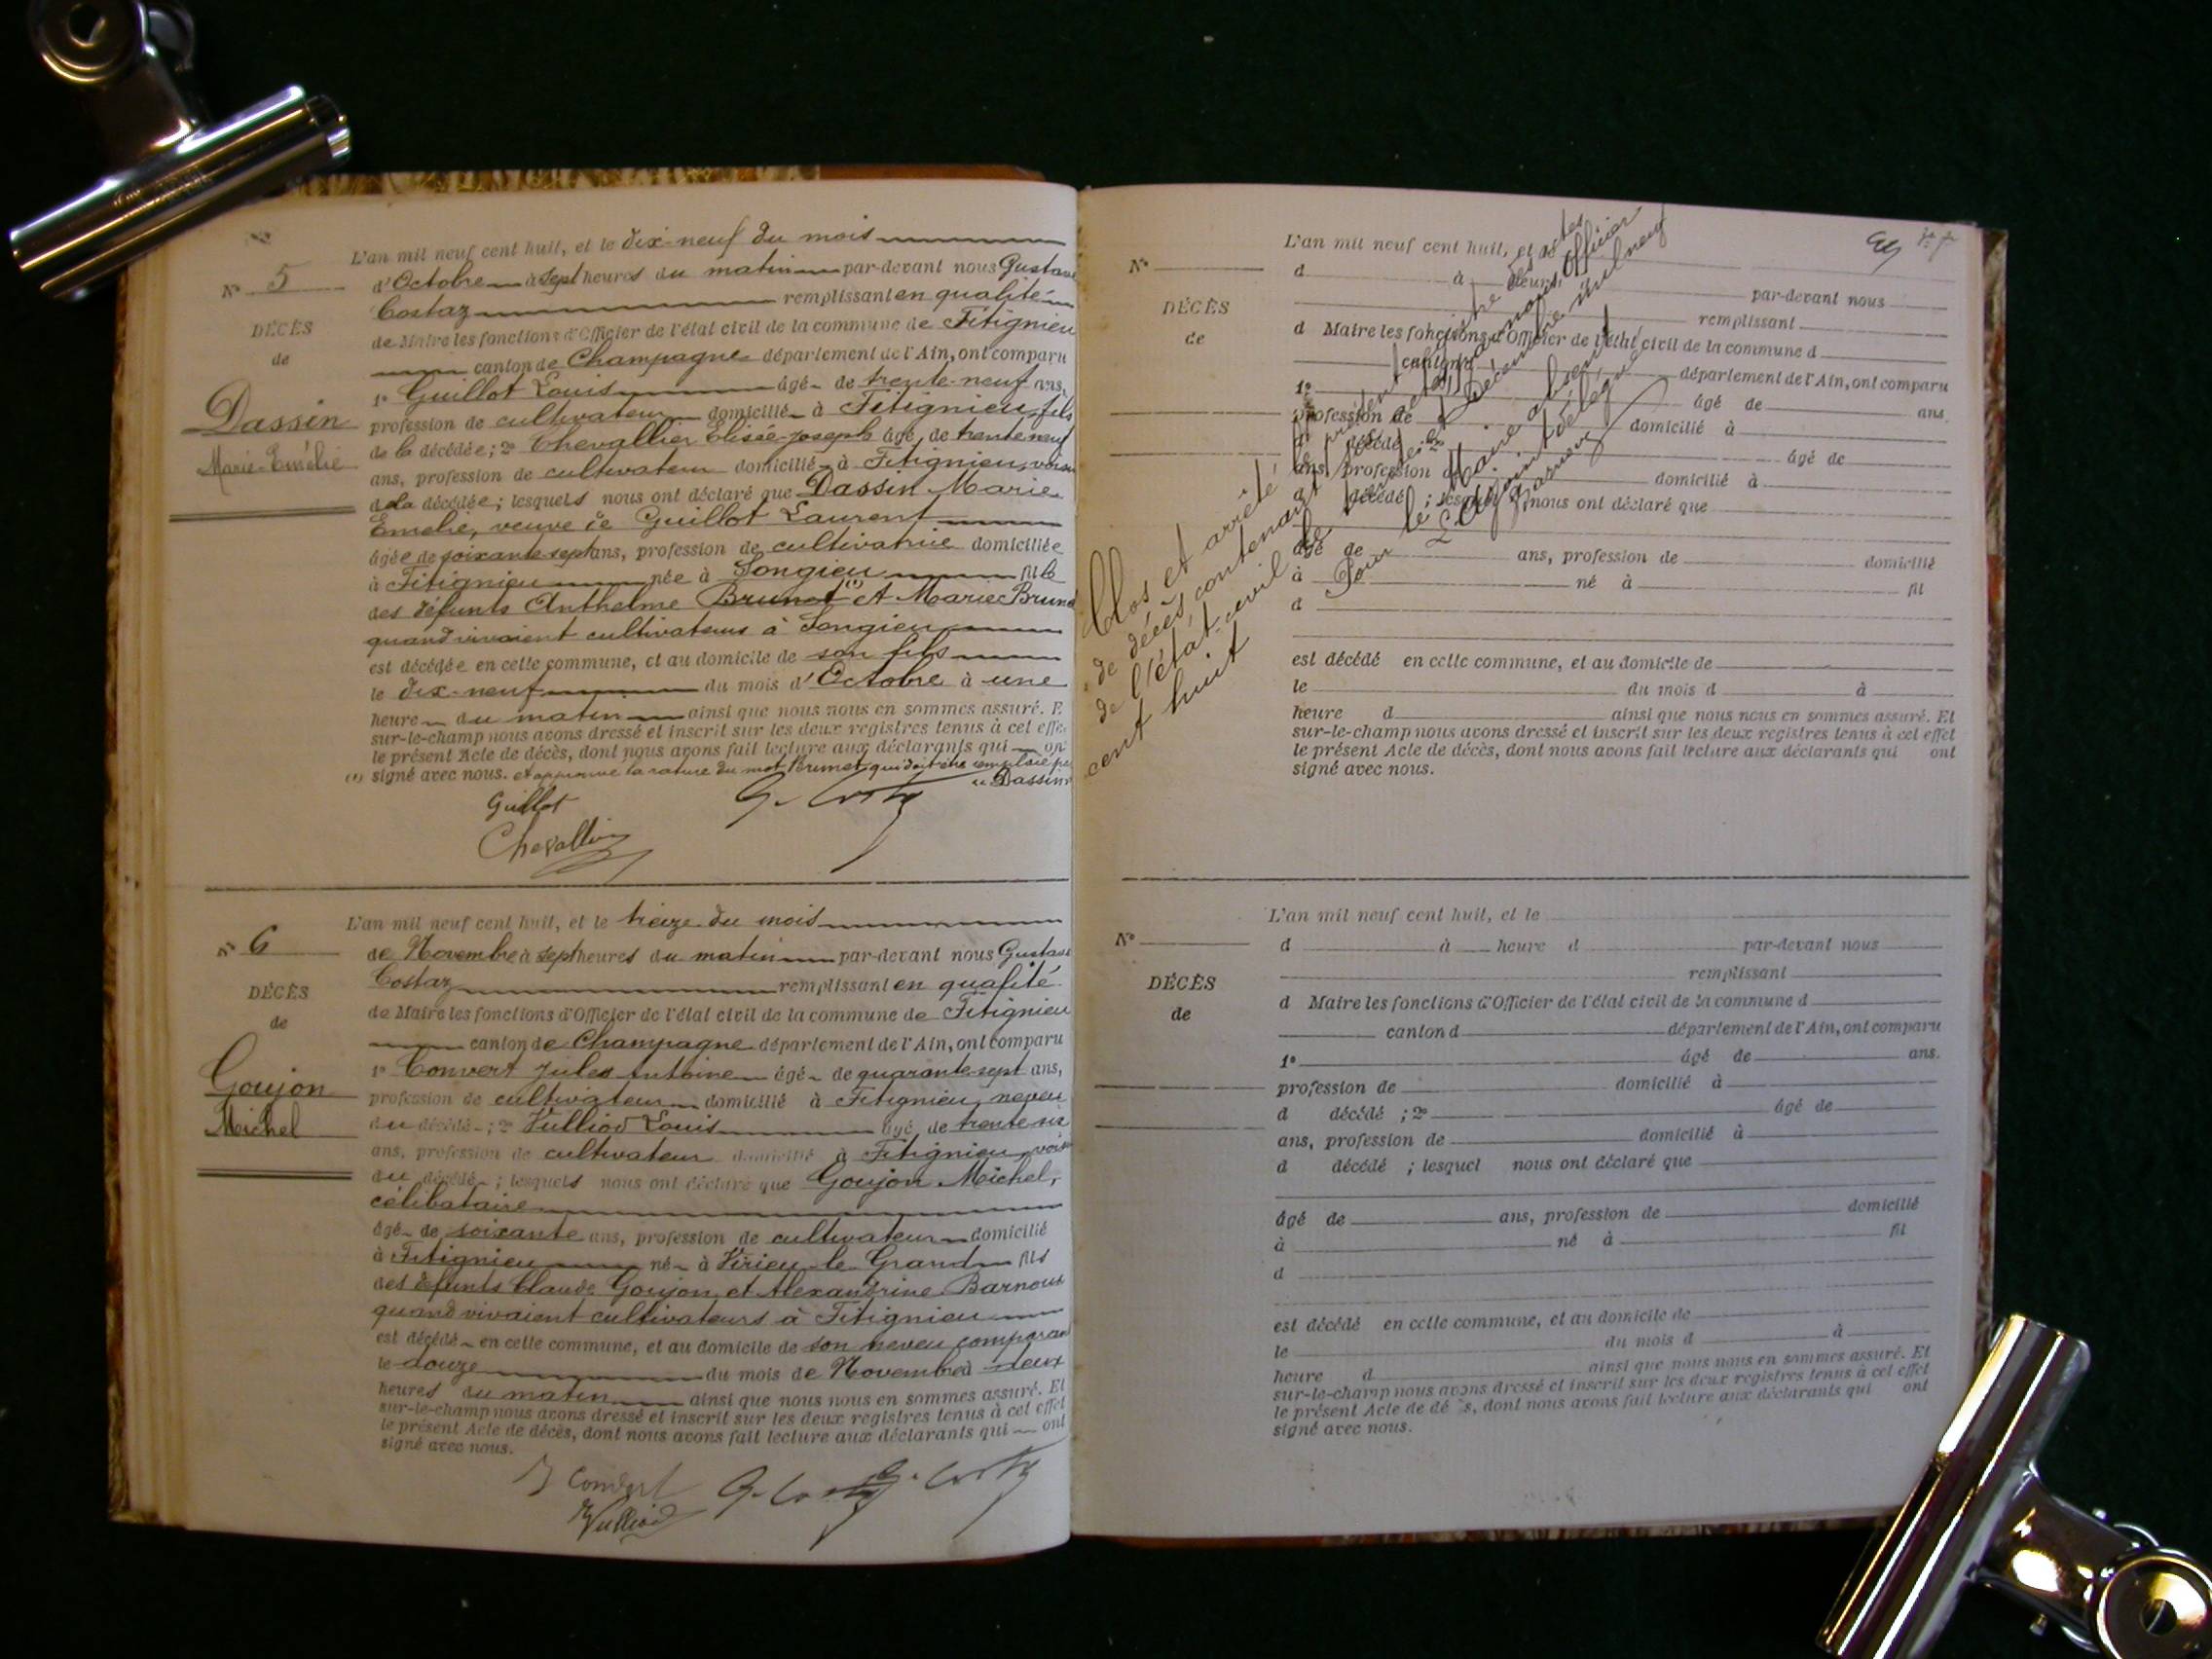 L'an mil neuf cent huit, et le dix-neuf du mois
N° 5
d'Octobre à sept heures du matin par-devant nous Gustave
Costaz remplissant en qualité
DÉCÈS
de Maire les fonctions d'Officier de l'état civil de la commune de Fitignieu
de
canton de Champagne département de l'Ain, ont comparu
1° Guillot Louis âgé de trente-neuf ans,
Dassin
profession de cultivateur domicilié à Fitignieu, fils
de la décédée; 2° Chevallier Elisée-Joseph âgé de trente neuf
Marie-Emélie
ans, profession de cultivateur domicilié à Fitignieu, voisin
de la décédée; lesquels nous ont déclaré que Dassin Marie
Emelie, veuve de Guillot Laurent
âgée de soixante sept ans, profession de cultivatrice domiciliée
à Fitignieu née à Songieu fille
des défunts Anthelme Brunet (1) et Marie Brunet
quand vivaient cultivateurs à Songieu
est décédée en cette commune, et au domicile de son fils
le dix-neuf du mois d'Octobre à une
heure du matin ainsi que nous nous en sommes assuré. E
sur-le-champ nous avons dressé et inscrit sur les deux registres tenus à cet effe
le présent Acte de décès, dont nous avons fait lecture aux déclarants qui on
(1) signé avec nous. et approuvé la rature du mot Brunet, qui doit être remplacé pa
"Dassin"
Guillot
G. Costaz
Chevallier
L'an mil neuf cent huit, et le treize du mois
N° 6
de Novembre à sept heures du matin par-devant nous Gustave
Costaz remplissant en qualité
DÉCÈS
de Maire les fonctions d'Officier de l'état civil de la commune de Fitignieu
de
canton de Champagne département de l'Ain, ont comparu
1° Convert Jules Antoine âgé de quarante-sept ans,
Goujon
profession de cultivateur domicilié à Fitignieu, neveu
Michel
du décédé; 2° Vulliod Louis âgé de trente six
ans, profession de cultivateur domicilié à Fitignieu, voisin
du décédé; lesquels nous ont déclaré que Goujon Michel,
célibataire
âgé de soixante ans, profession de cultivateur domicilié
à Fitignieu né à Virieu-le-Grand fils
des défunts Claude Goujon et Alexandrine Barnoux
quand vivaient cultivateurs à Fitignieu
est décédé en cette commune, et au domicile de son neveu comparant
le douze du mois de Novembre à deux
heures du matin ainsi que nous nous en sommes assuré. Et
sur-le-champ nous avons dressé et inscrit sur les deux registres tenus à cet effet
le présent Acte de décès, dont nous avons fait lecture aux déclarants qui ont
signé avec nous.
J Convert G. Costaz G. Costaz
Vulliod
L'an mil neuf cent huit, et le
N°
d à heure
par-devant nous
DÉCÈS
remplissant
de
d Maire les fonctions d'Officier de l'état civil de la commune d
canton d département de l'Ain, ont comparu
1° âgé de ans.
profession de domicilié à
d décédé ; 2° âgé de
ans, profession de domicilié à
d décédé ; lesquel nous ont déclaré que
âgé de ans, profession de domicilié
à né à fil
d
est décédé en cette commune, et au domicile de
le du mois d à
heure d ainsi que nous nous en sommes assuré. Et
sur-le-champ nous avons dressé et inscrit sur les deux registres tenus à cet effet
le présent Acte de décès, dont nous avons fait lecture aux déclarants qui ont
signé avec nous.
Clos et arrêté le présent registre des actes
de décès contenant six actes, par nous, Officier
de l'état civil le trente et un Décembre mil neuf
cent huit
Pour le Maire absent
L'Adjoint délégué
L'an mil neuf cent huit, et le
N°
d à heure d par-devant nous
remplissant
DÉCÈS
d Maire les fonctions d'Officier de l'état civil de la commune d
de
canton d département de l'Ain, ont comparu
1° âgé de ans.
profession de domicilié à
d décédé ; 2° âgé de
ans, profession de domicilié à
d décédé ; lesquel nous ont déclaré que
âgé de ans, profession de domicilié
à né à fil
d
est décédé en cette commune, et au domicile de
le du mois d à
heure d ainsi que nous nous en sommes assuré. Et
sur-le-champ nous avons dressé et inscrit sur les deux registres tenus à cet effet
le présent Acte de décès, dont nous avons fait lecture aux déclarants qui ont
signé avec nous.